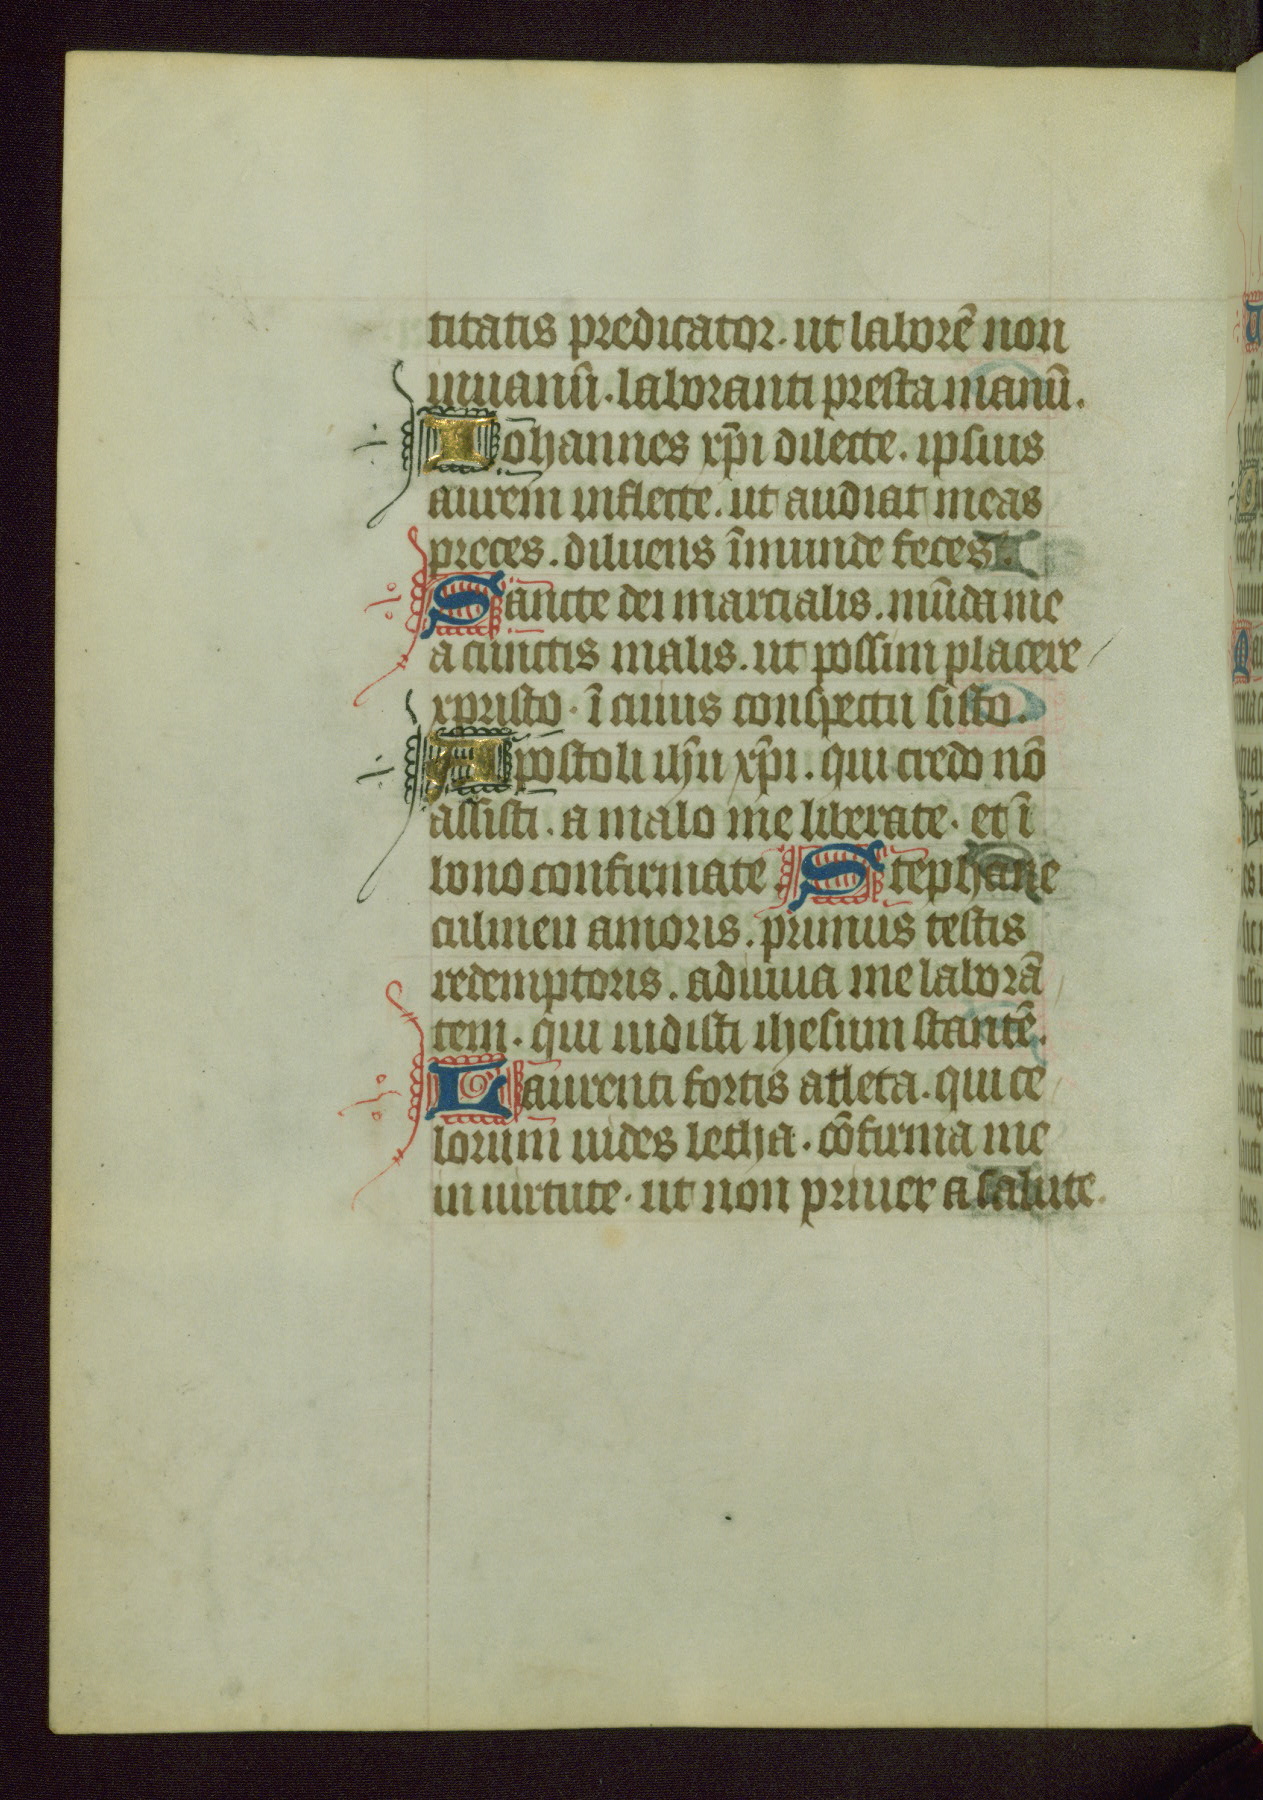 titatis predicator. ut laborẽ non
inuanũ. laboranti presta manũ.
Iohannes xp̃i dilecte. ipsius
aurem inflecte. ut audiat meas
preces. diluens ĩmunde feces.
Sancte dei marcialis. mũda me
a cunctis malis. ut possim placere
xpristo. ĩ cuius conspectu sisto.
Apostoli ih̃u xp̃i. qui credo nõ
assisti. a malo me liberate. et ĩ
bono confirmate. Stephane
culmen amoris. primus testis
redemptoris. adiuua me laborã
tem. qui uidisti ihesum stantẽ.
Laurenti fortis atleta. qui ce
lorum uides letha. cõfirma me
in uirtute. ut non priuer a salute.